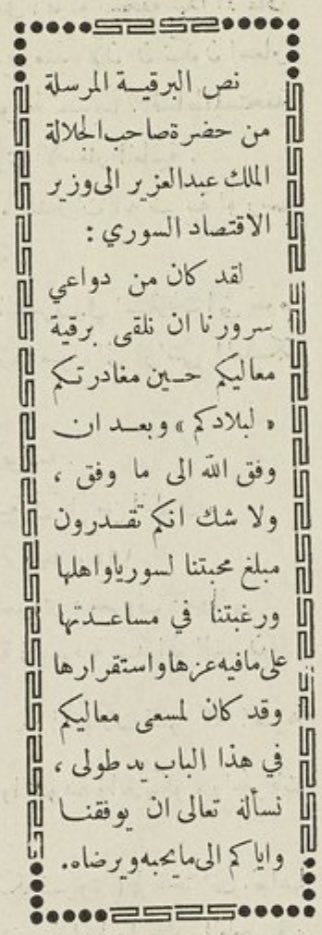 نص البرقيـة المرسلة
من حضرة صاحب الجلالة
الملك عبدالعزيز الى وزير
الاقتصاد السوري :
لقد كان من دواعي
سرورنا ان نلقى برقية
معاليكم حين مغادرتكم
« لبلادكم » وبعد ان
وفق الله الى ما وفق ،
ولا شك انكم تقدرون
مبلغ محبتنا لسوريا واهلها
ورغبتنا في مساعدتها
على مافيه عزها واستقرارها
وقد كان لمسعى معاليكم
في هذا الباب يد طولى ،
نسأله تعالى ان يوفقنا
واياكم الى مايحبه ويرضاه.